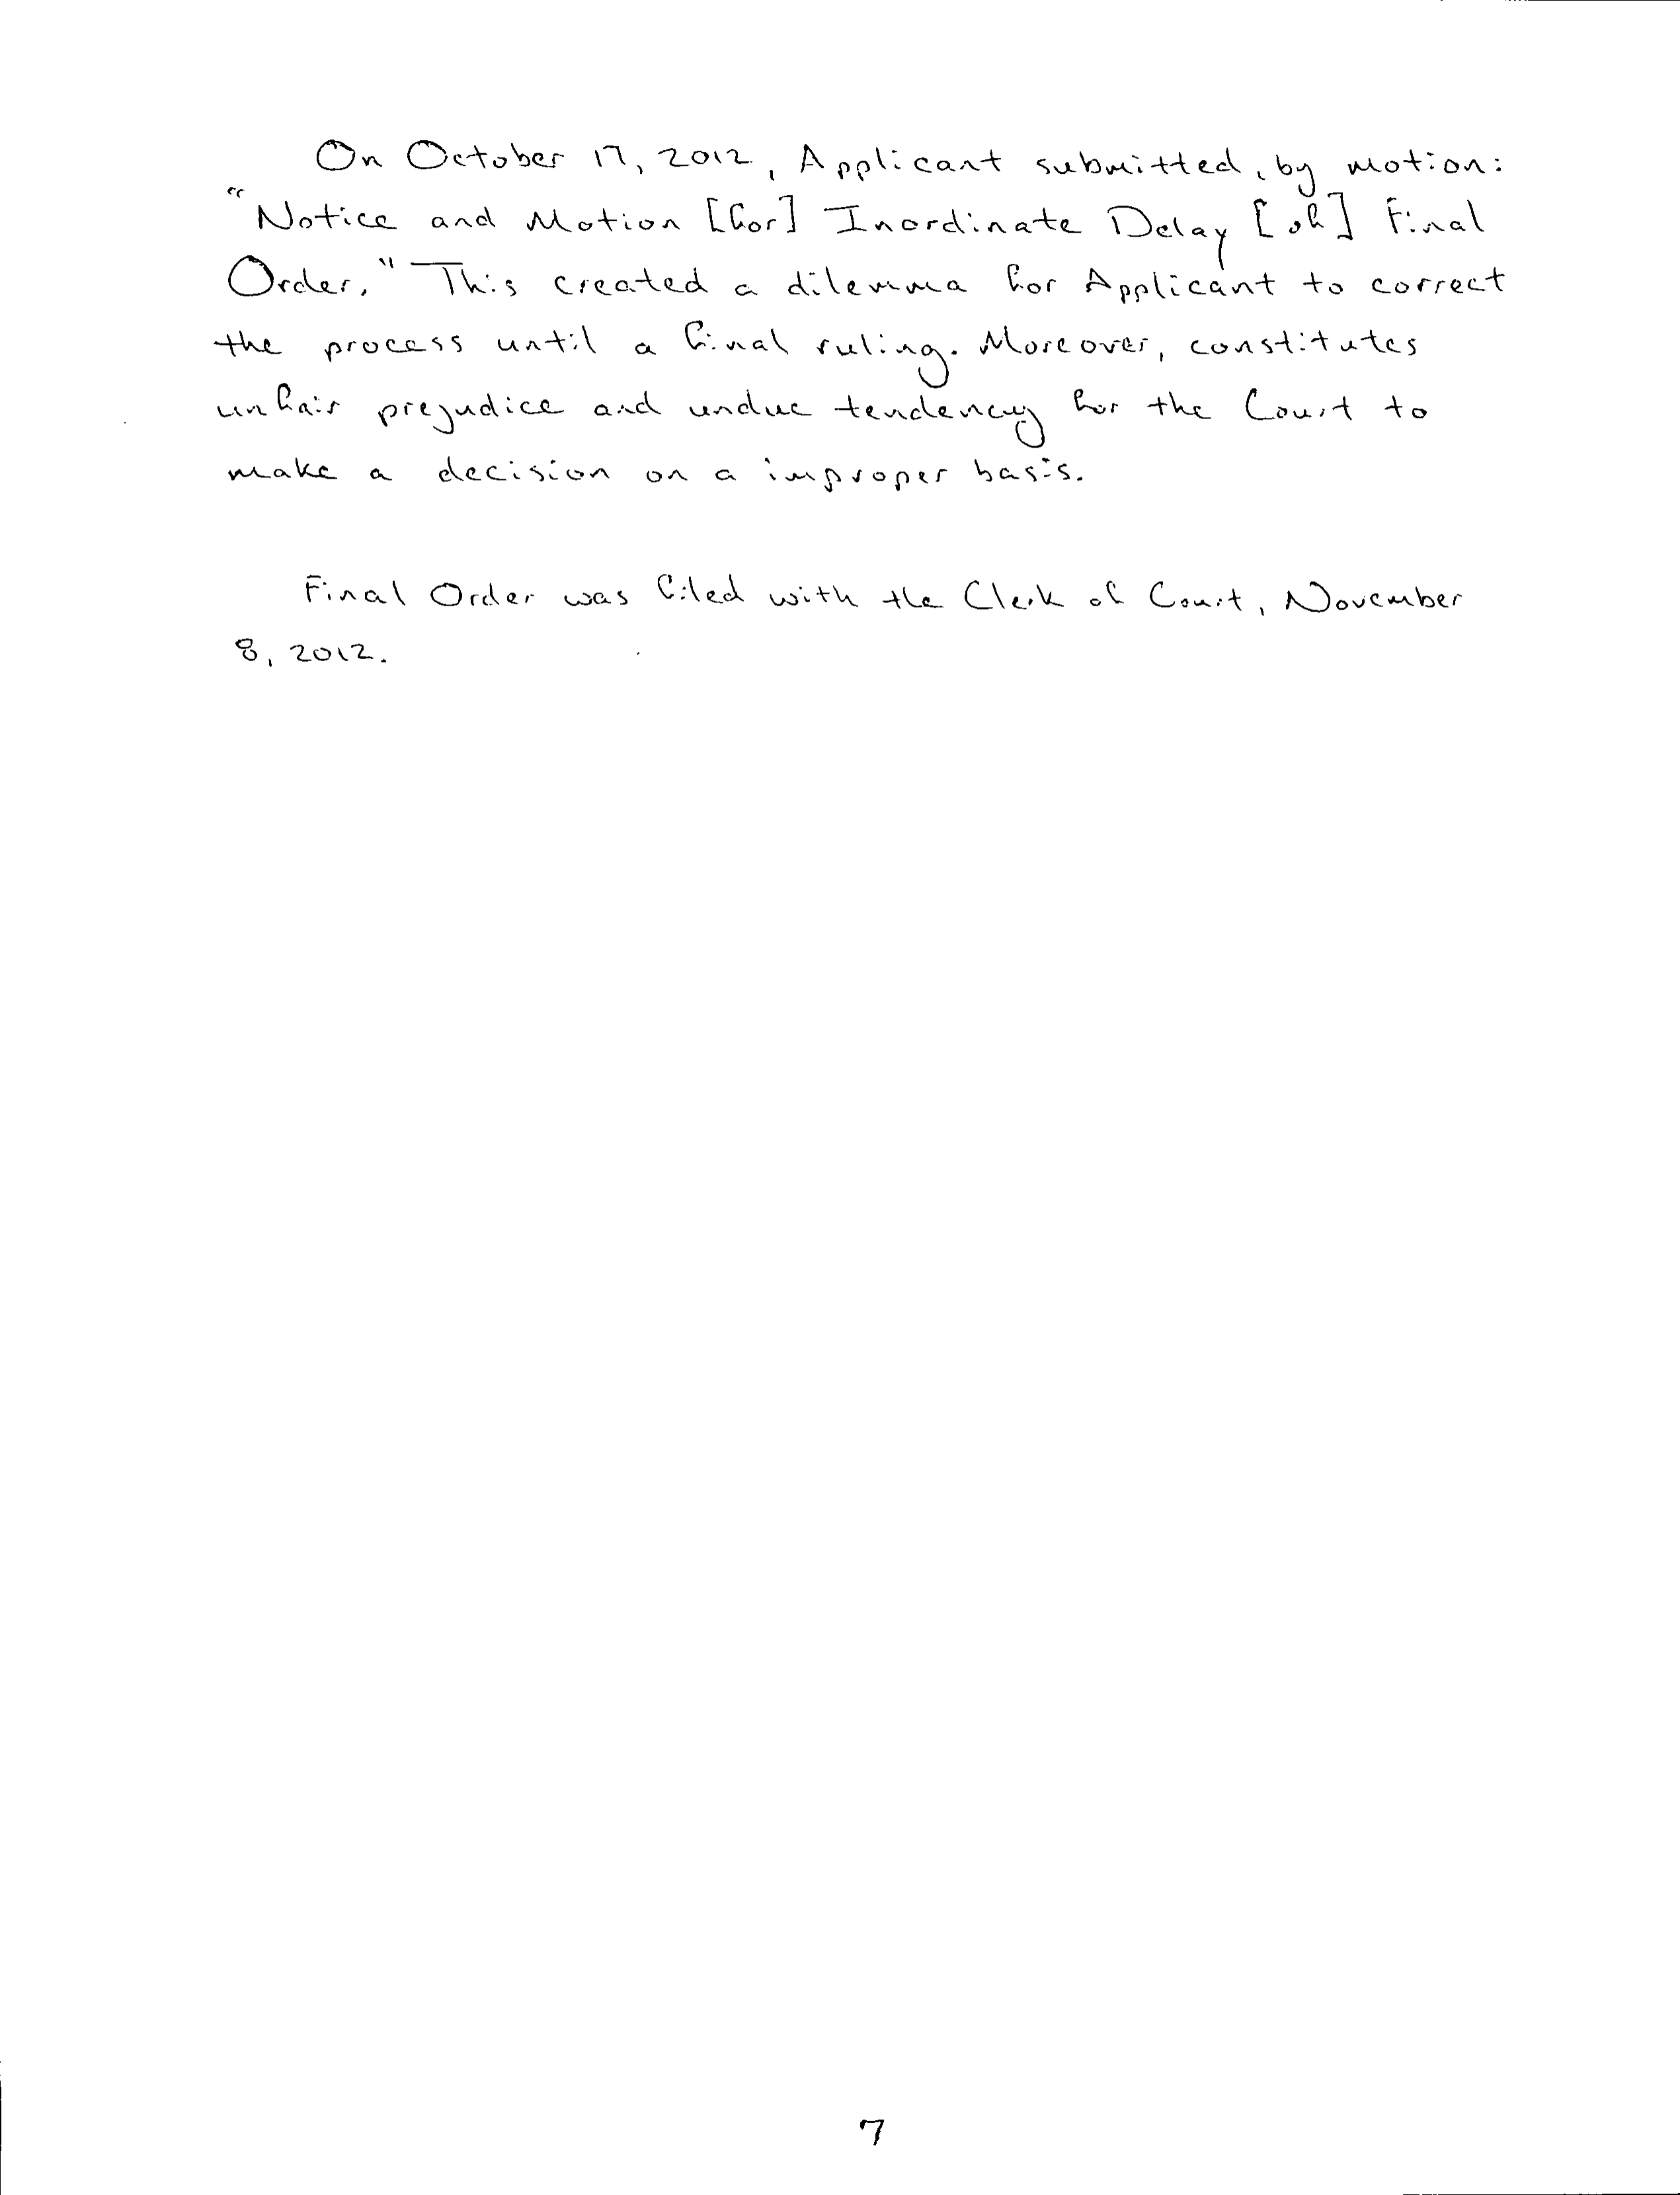 On October 17, 2012, Applicant submitted, by motion:
"Notice and Motion [for] Inordinate Delay [of] Final
Order." This created a dilemma for Applicant to correct
the process until a final ruling. Moreover, constitutes
unfair prejudice and undue tendency for the Court to
make a decision on a improper basis.
Final Order was filed with the Clerk of Court, November
8, 2012.
7